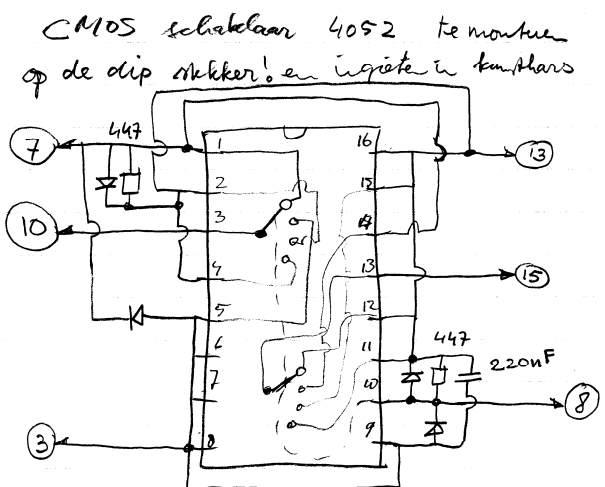 CMOS schakelaar 4052 te monteren
op de dip stekker! en ingieten in kunsthars
447
7
1
16
13
2
15
10
3
14
4
13
15
5
12
6
11
447
220nF
7
10
8
9
3
8